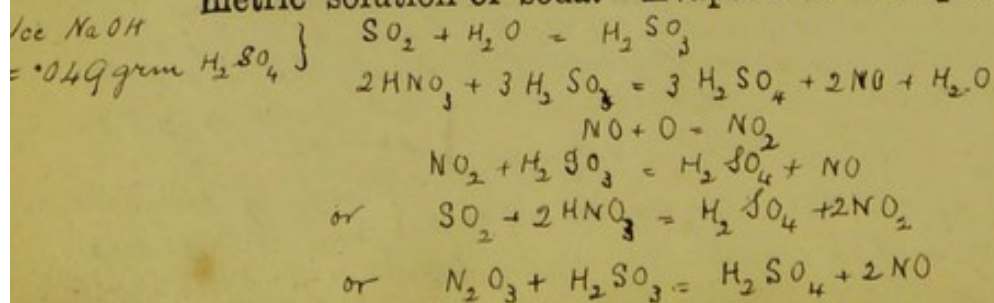 metric solution of soda.
1cc NaOH
= .049 grm H₂SO₄ }
SO₂ + H₂O = H₂SO₃
2HNO₃ + 3H₂SO₃ = 3H₂SO₄ + 2NO + H₂O
NO + O = NO₂
NO₂ + H₂SO₃ = H₂SO₄ + NO
or SO₂ + 2HNO₃ = H₂SO₄ + 2NO₂
or N₂O₃ + H₂SO₃ = H₂SO₄ + 2NO